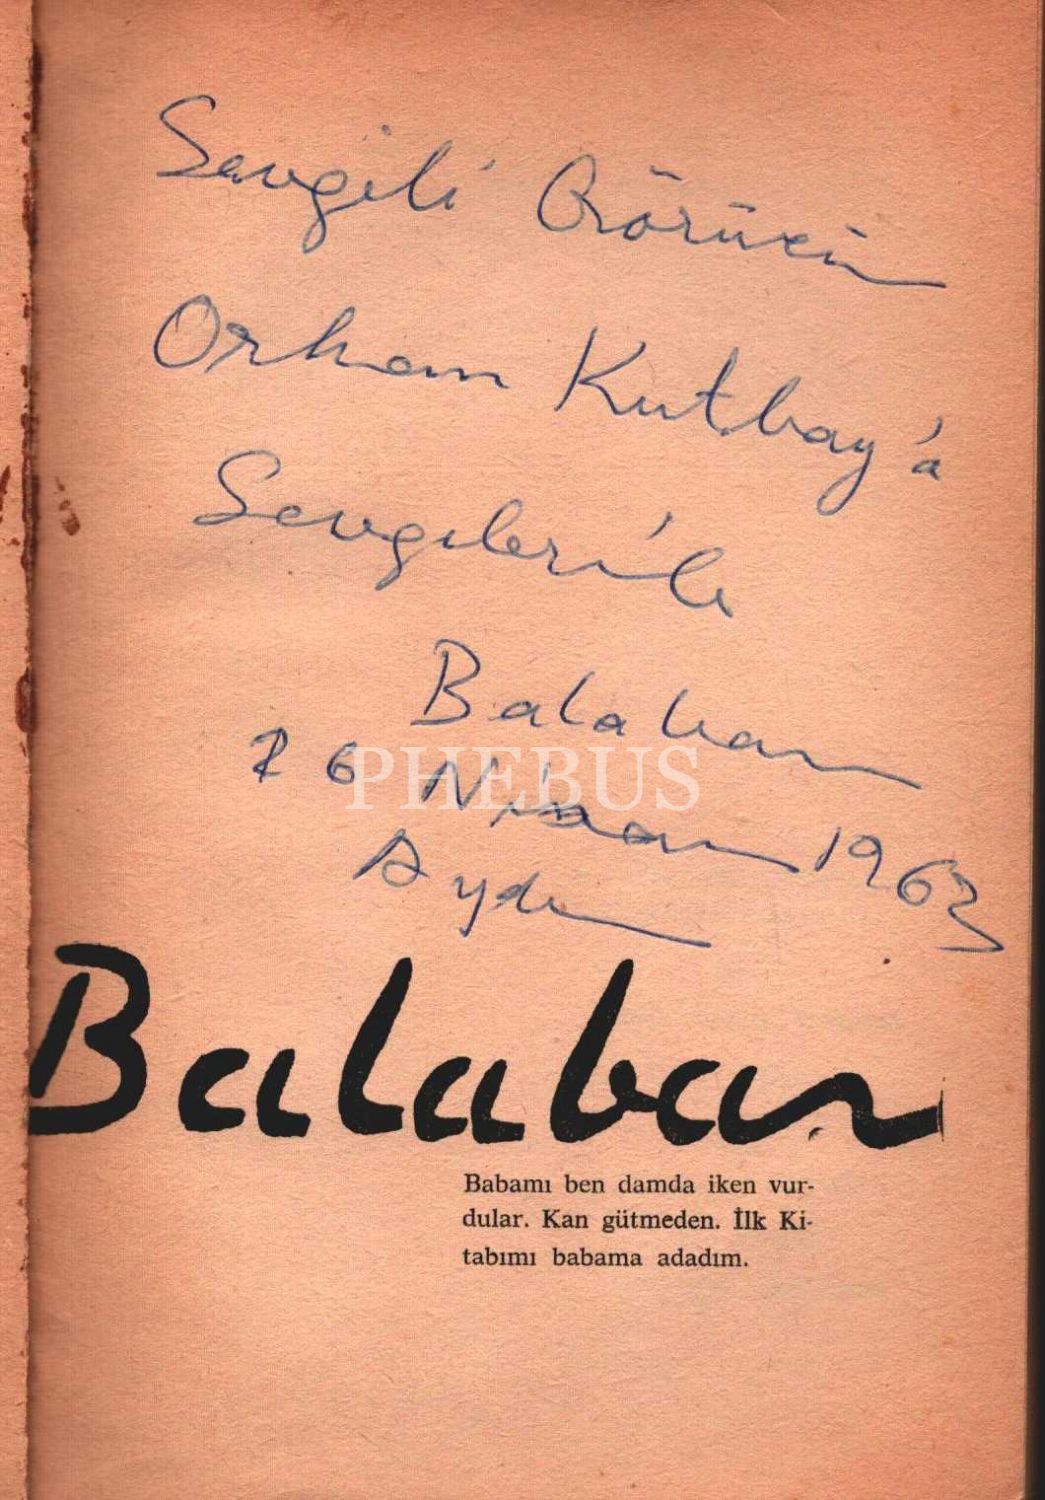 Sevgili Görücü
Orhan Kutbay'a
Sevgileri'le
Balaban
26 Nisan 1963
Aydın
PHEBUS
Balaban
Babamı ben damda iken vur-
dular. Kan gütmeden. İlk Ki-
tabımı babama adadım.